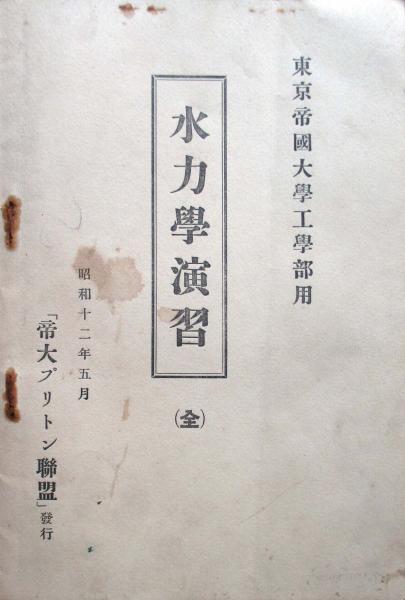 東京帝國大學工學部用
水力學演習
(全)
昭和十二年五月
「帝大プリトン聯盟」發行